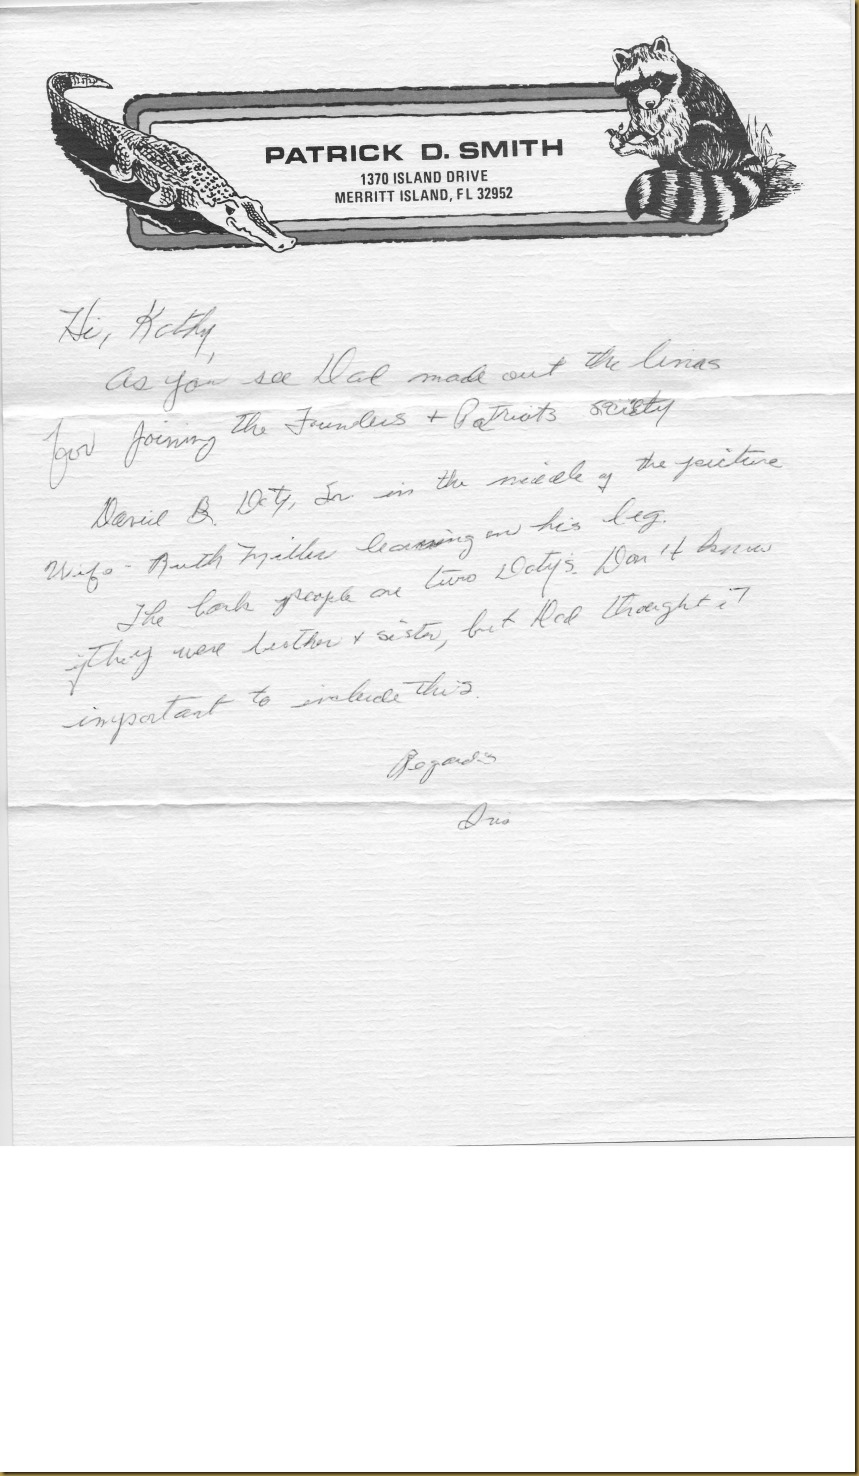 PATRICK D. SMITH
1370 ISLAND DRIVE
MERRITT ISLAND, FL 32952
Hi, Kathy,
As you see Dad made out the lines
for joining the Founders + Patriots society
David B. Doty, Sr. in the middle of the picture
Wife - Ruth Miller leaning on his leg.
The back people are two Doty's. Don't know
if they were brother & sister, but Dad thought it
important to include this.
Regards
Iris